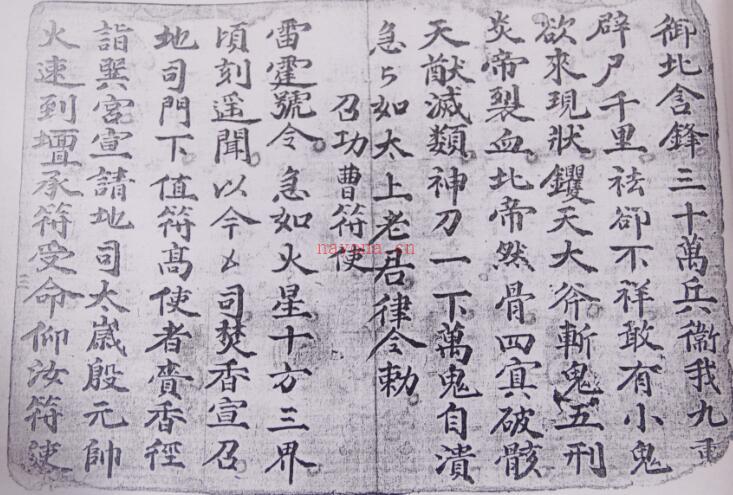 御北含鋒三十萬兵衞我九重
辟尸千里祛卻不祥敢有小鬼
欲來現狀钁天大斧斬鬼五刑
炎帝裂血北帝然骨四㝠破骸
天猷滅類神刀一下萬鬼自潰
急々如太上老君律令勅
召功曹符使
雷霆號令急如火星十方三界
頃刻遥聞以今厶司焚香宣召
地司門下值符髙使者賫香徑
詣巽宮宣請地司大歳殷元帥
火速到壇承符受命仰汝符使
nayona.cn